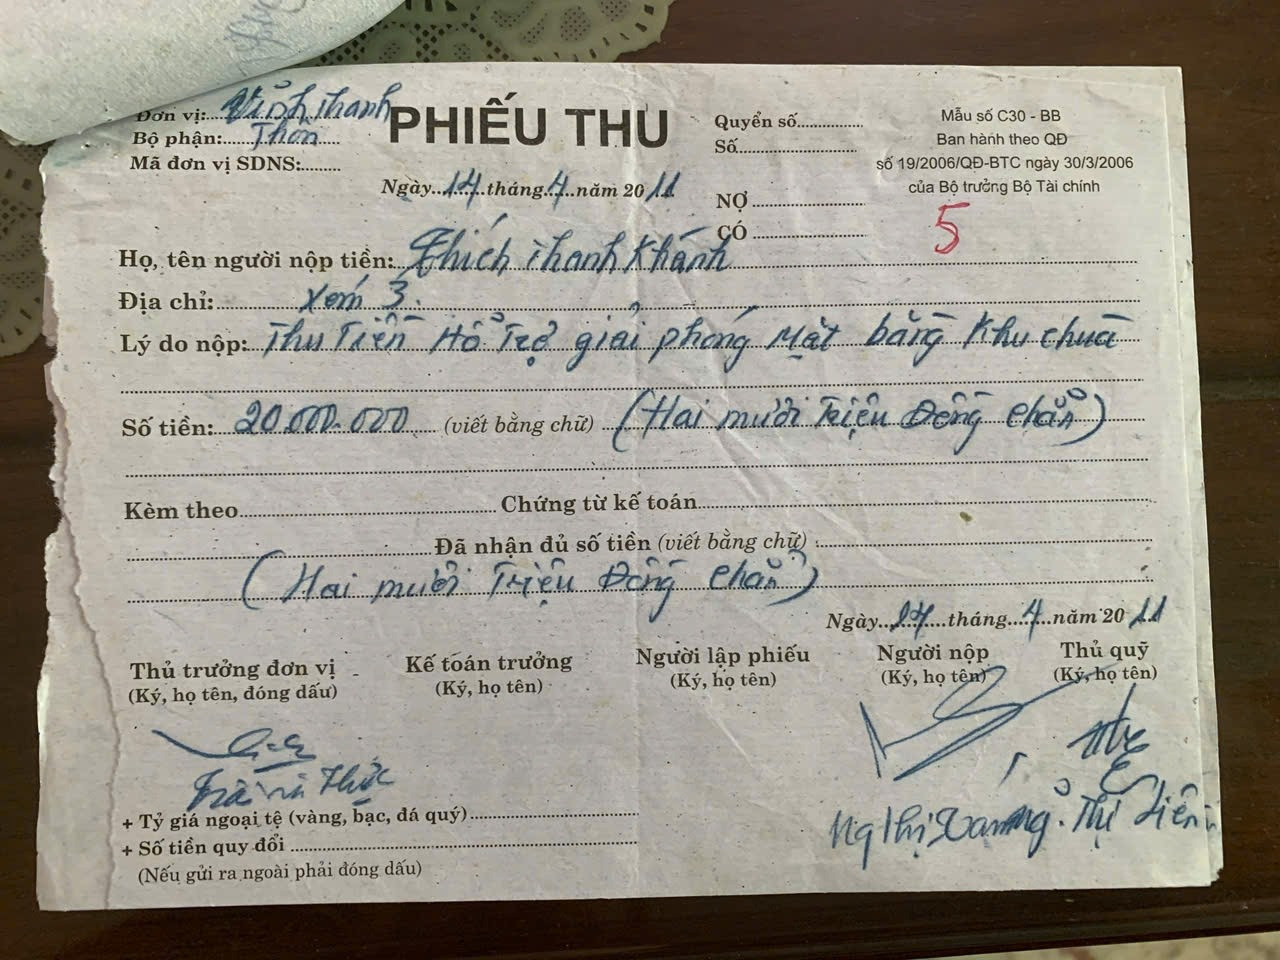 Đơn vị: Vĩnh Thanh
Bộ phận: Thôn
Mã đơn vị SDNS:
PHIẾU THU
Ngày 14 tháng 4 năm 2011
Quyển số
Số
NỢ
CÓ
Mẫu số C30 - BB
Ban hành theo QĐ
số 19/2006/QĐ-BTC ngày 30/3/2006
của Bộ trưởng Bộ Tài chính
5
Họ, tên người nộp tiền: Thích Thanh Khánh
Địa chỉ: Xóm 3
Lý do nộp: Thu Tiền Hỗ Trợ giải phóng Mặt bằng Khu chùa
Số tiền: 20.000.000 (viết bằng chữ) (Hai mươi Triệu Đồng chẵn)
Kèm theo Chứng từ kế toán
Đã nhận đủ số tiền (viết bằng chữ) :
(Hai mươi Triệu Đồng chẵn)
Ngày 14 tháng 4 năm 2011
Thủ trưởng đơn vị
(Ký, họ tên, đóng dấu)
Kế toán trưởng
(Ký, họ tên)
Người lập phiếu
(Ký, họ tên)
Người nộp
(Ký, họ tên)
Thủ quỹ
(Ký, họ tên)
+ Tỷ giá ngoại tệ (vàng, bạc, đá quý)
+ Số tiền quy đổi
(Nếu gửi ra ngoài phải đóng dấu)